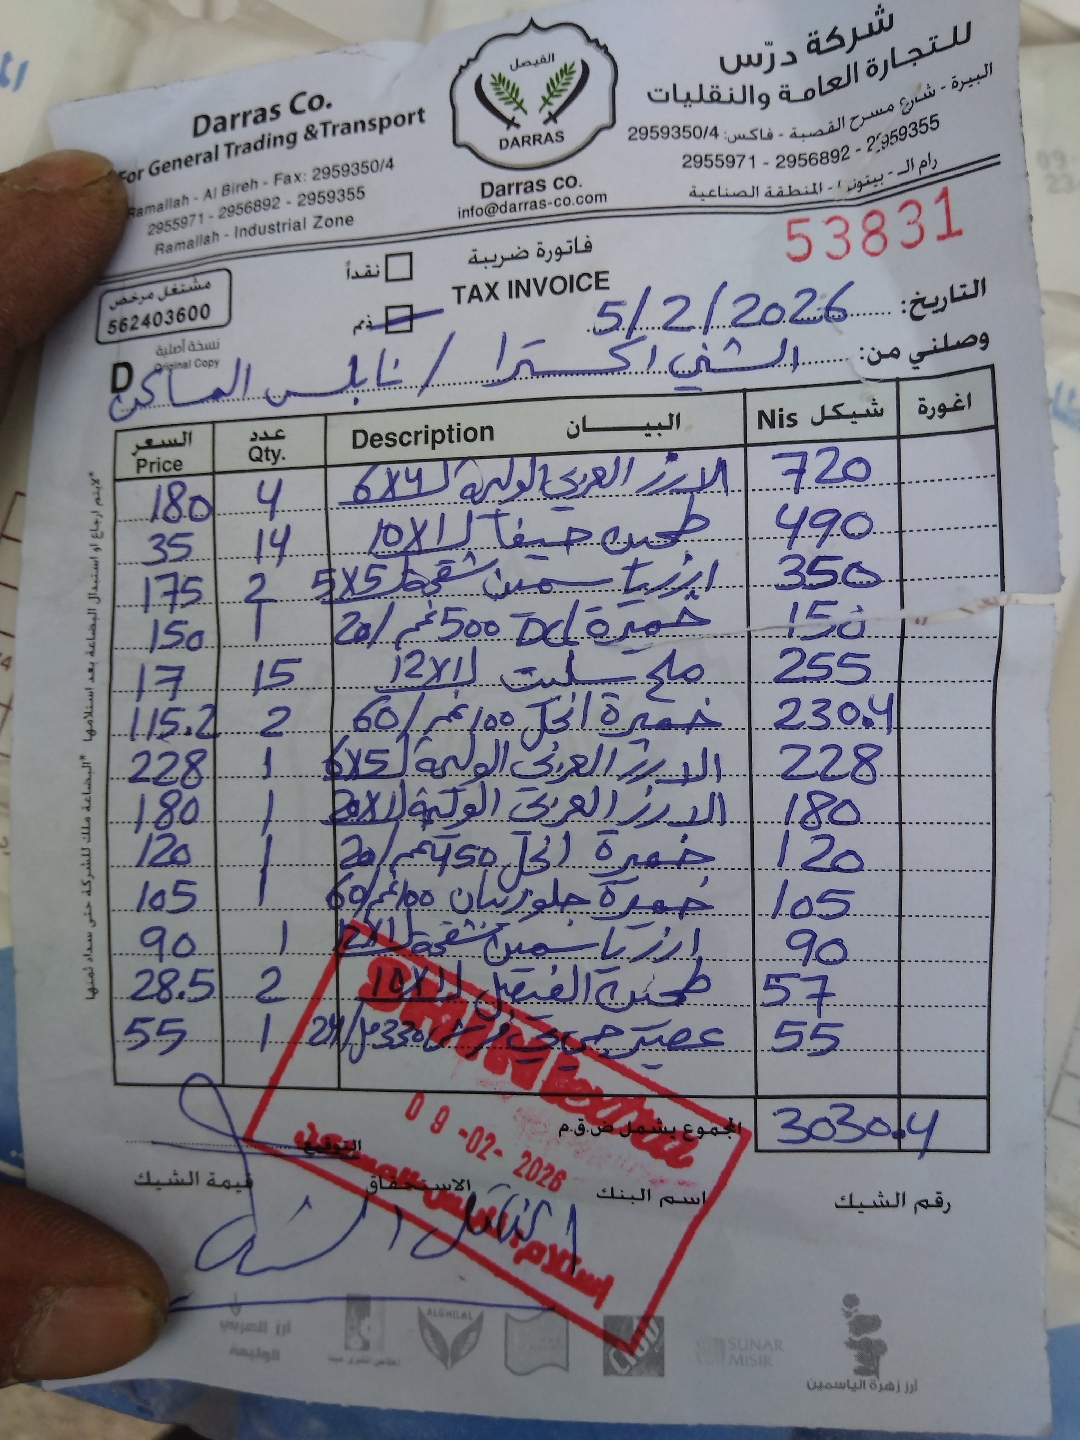 شركة درّس
للتجارة العامة والنقليات
البيرة - شارع مسرح القصبة - فاكس: 2959350/4
2955971 - 2956892 - 2959355
رام الـ - بيتونيا - المنطقة الصناعية
الفيصل
DARRAS
Darras co.
info@darras-co.com
Darras Co.
For General Trading &Transport
Ramallah - Al Bireh - Fax: 2959350/4
2955971 - 2956892 - 2959355
Ramallah - Industrial Zone
53831
فاتورة ضريبة
TAX INVOICE
نقداً
ذمم
مشتغل مرخص
562403600
نسخة أصلية
Original Copy
D
التاريخ: 5/2/2026
وصلني من: الشني اكسترا / نابلس المساكن
اغورة شيكل Nis البيـــان Description عدد Qty. السعر Price
720 الارز العربي الوليمة 6X4ك 4 180
490 طحين حيفا 10X1ك 14 35
350 ارز ياسمين شقحة 5X5ك 2 175
150 خميرة DCL 500غم/20 1 150
255 ملح سليت 12X1ك 15 17
230.4 خميرة النخل 100غم/60 2 115.2
228 الارز العربي الوليمة 6X5ك 1 228
180 الارز العربي الوليمة 20X1ك 1 180
120 خميرة النخل 450غم/20 1 120
105 خميرة جلوريبان 100غم/60 1 105
90 ارز ياسمين شقحة 12X1ك 1 90
57 طحينة الفيصل 10X1ك 2 28.5
55 عصير جي في فرش 330مل/24 1 55
المجموع يشمل ض.ق.م 3030.4
*لايتم ارجاع او استبدال البضاعة بعد استلامها
*البضاعة ملك للشركة حتى سداد ثمنها
09-02-2026
التوقيع
رقم الشيك اسم البنك الاستحقاق قيمة الشيك
استلام
ارز العربي
الوليمة
ALGHILAL
SUNAR
MISIR
أرز زهرة الياسمين